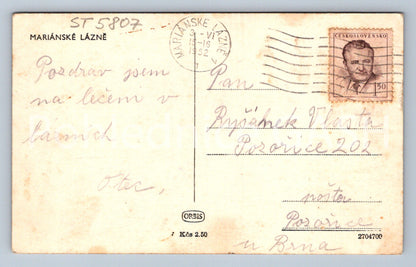 ST 5807
MARIÁNSKÉ LÁZNĚ
MARIÁNSKÉ LÁZNĚ
3.VI
1952
ČESKOSLOVENSKO
1.50
Pozdrav jsem
na léčem v
lázních
Otec.
Pan
Ryšánek Vlasta
Pozořice 202
pošta
Pozořice
u Brna
ORBIS
Kčs 2.50
2704700